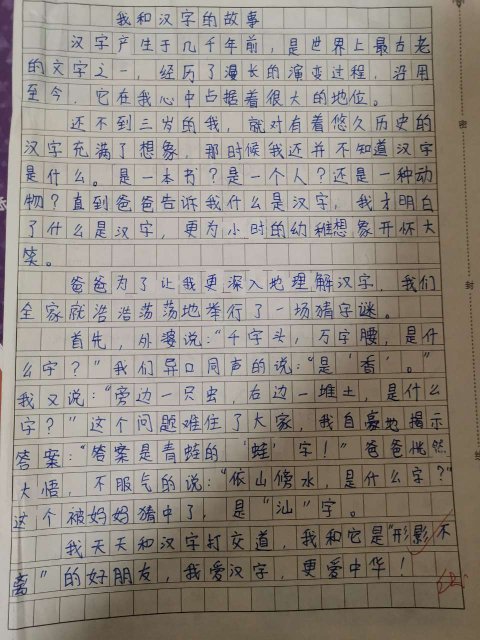 我和汉字的故事
汉字产生于几千年前，是世界上最古老
的文字之一，经历了漫长的演变过程，沿用
至今，它在我心中占据着很大的地位。
还不到三岁的我，就对有着悠久历史的
汉字充满了想象，那时候我还并不知道汉字
是什么。是一本书？是一个人？还是一种动
物？直到爸爸告诉我什么是汉字，我才明白
了什么是汉字，更为小时的幼稚想象开怀大
笑。
爸爸为了让我更深入地理解汉字，我们
全家就浩浩荡荡地举行了一场猜字谜。
首先，外婆说：“千字头，万字腰，是什
么字？”我们异口同声的说：“是‘香’。”
我又说：“旁边一只虫，右边一堆土，是什么
字？”这个问题难住了大家，我自豪地揭示
答案：“答案是青蛙的‘蛙’字！”爸爸恍然
大悟，不服气的说：“依山傍水，是什么字？”
这个被妈妈猜中了，是“汕”字。
我天天和汉字打交道，我和它是“形影不
离”的好朋友，我爱汉字，更爱中华！
密
封